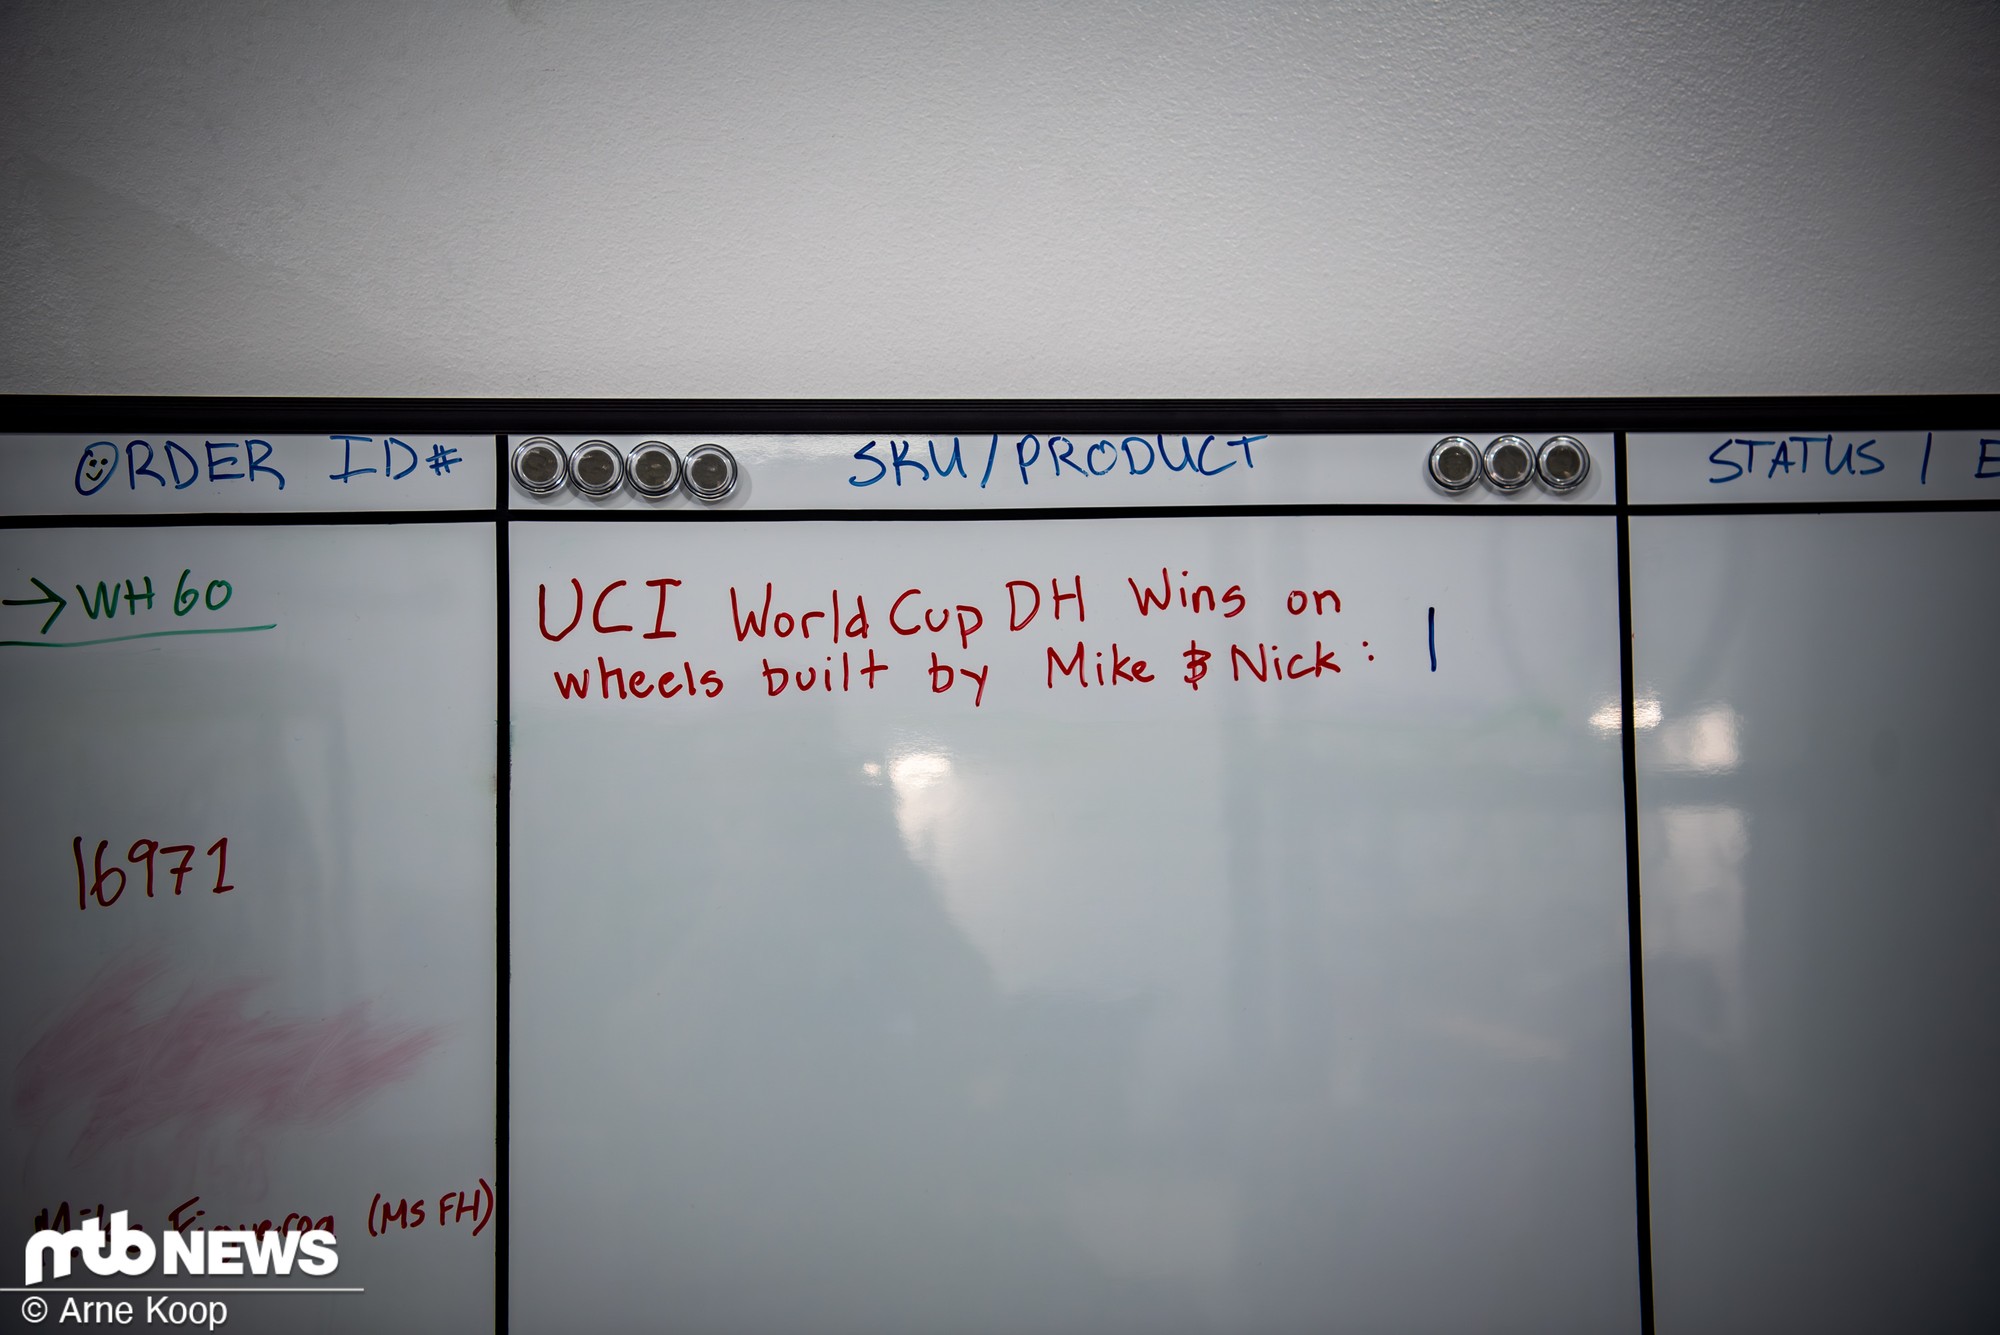 ORDER ID#
SKU/PRODUCT
STATUS / E
→WH60
UCI World Cup DH Wins on
wheels built by Mike & Nick: |
16971
(MS FH)
mtbNEWS
© Arne Koop